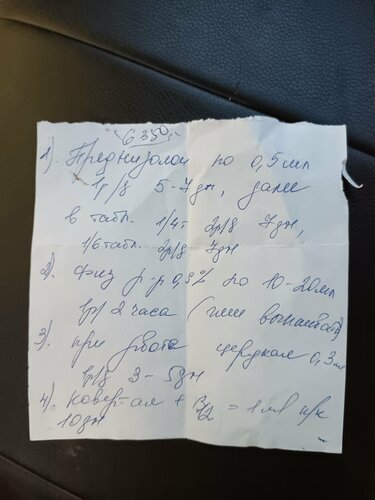 6350,-
1). Преднизолон по 0,5 мл
1р/д 5-7дн, далее
в табл. 1/4т 2р/д 7дн,
1/6 табл. 2р/д 7дн
2). Физ р-р 0,9% по 10-20мл
1р/2 часа (или
3). при рвоте церукал 0,3 мл
1р/д 3-5дн
4). Ковертал + B12 = 1 мл п/к
10дн